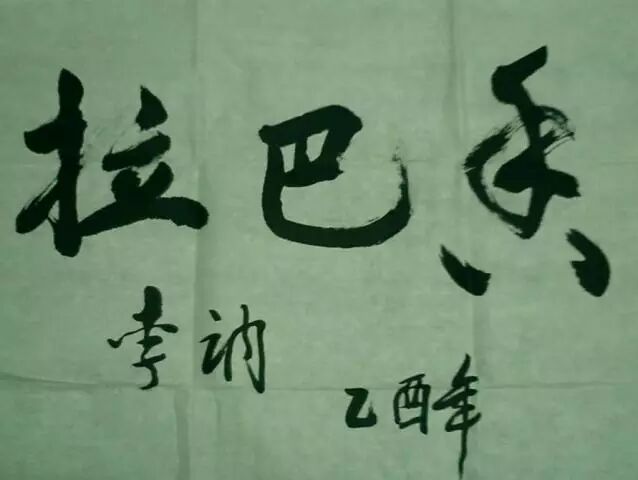 拉巴
李讷
乙酉年